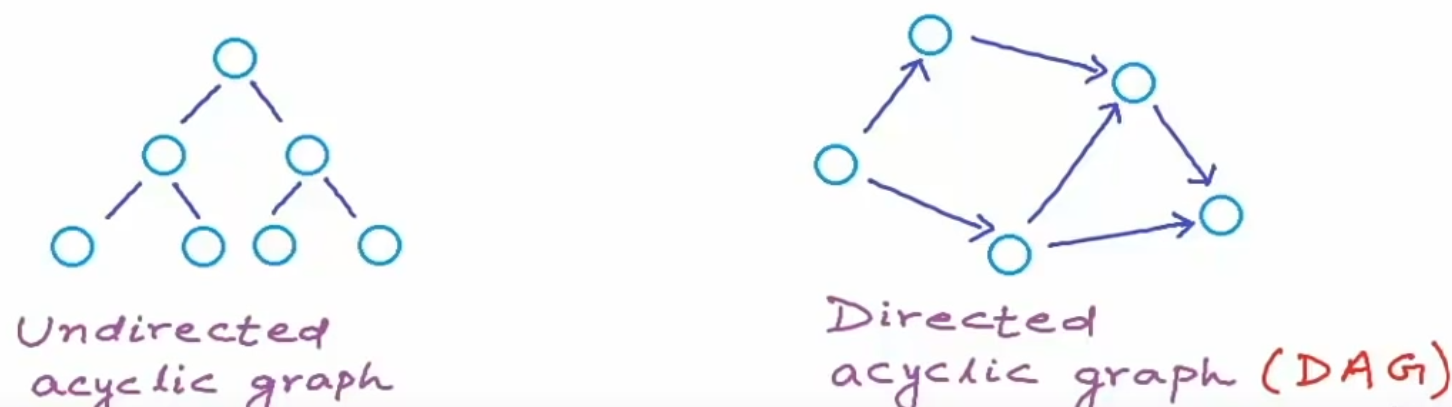 Undirected
acyclic graph
Directed
acyclic graph (DAG)